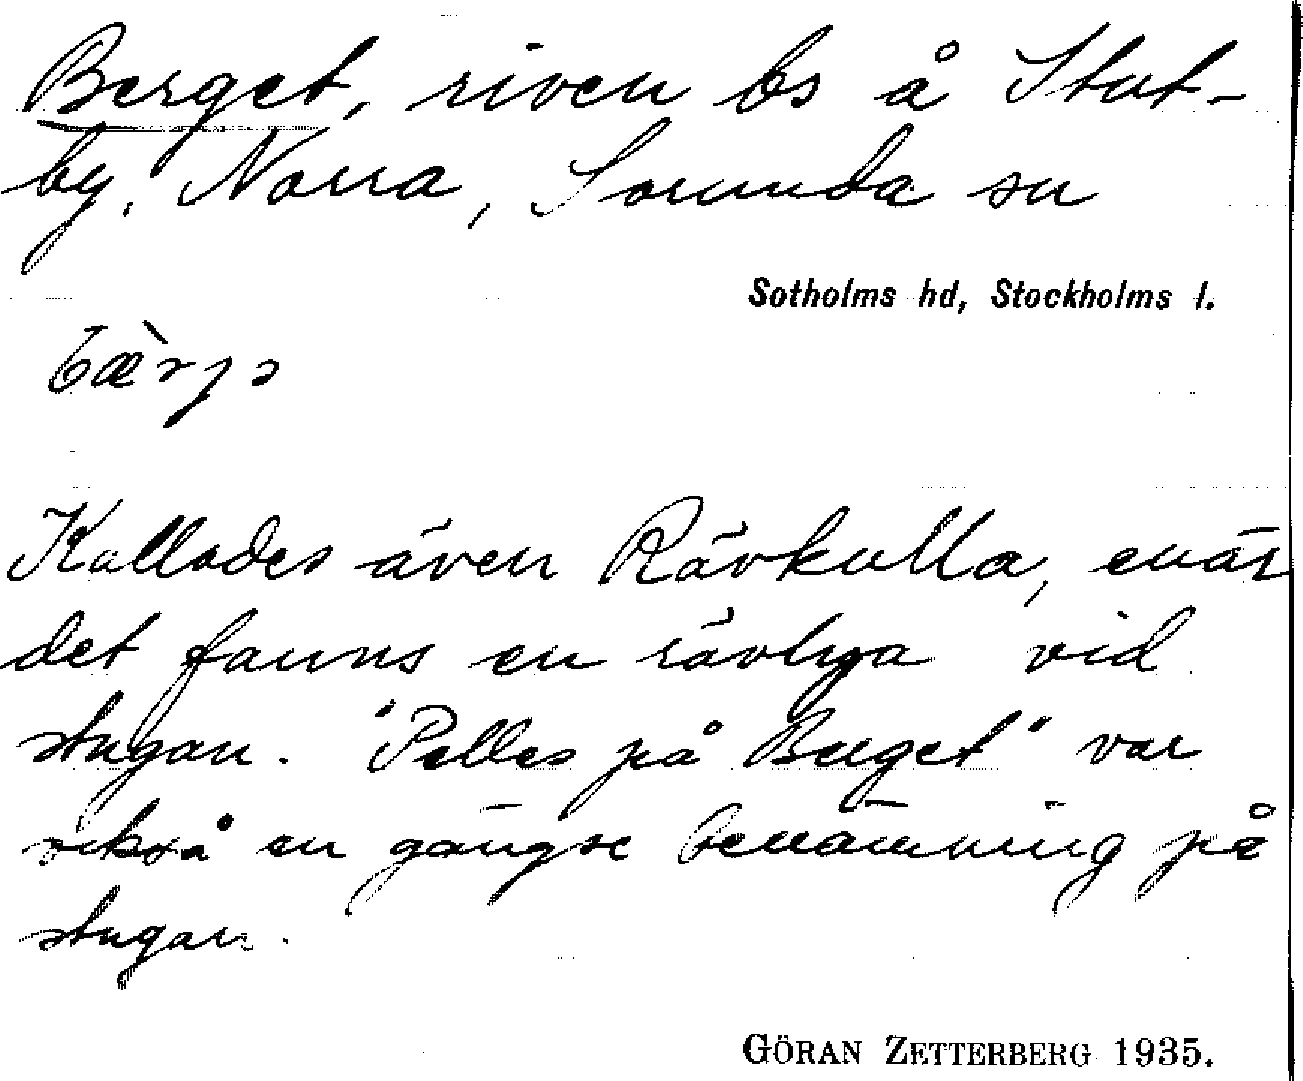 Berget, riven bs å Stut-
by, Norra, Sorunda sn
Sotholms hd, Stockholms l.
Kallades även Rävkulla, enär
det fanns en rävlya vid
stugan. "Pelles på Berget" var
också en gängse benämning på
stugan.
GÖRAN ZETTERBERG 1935.